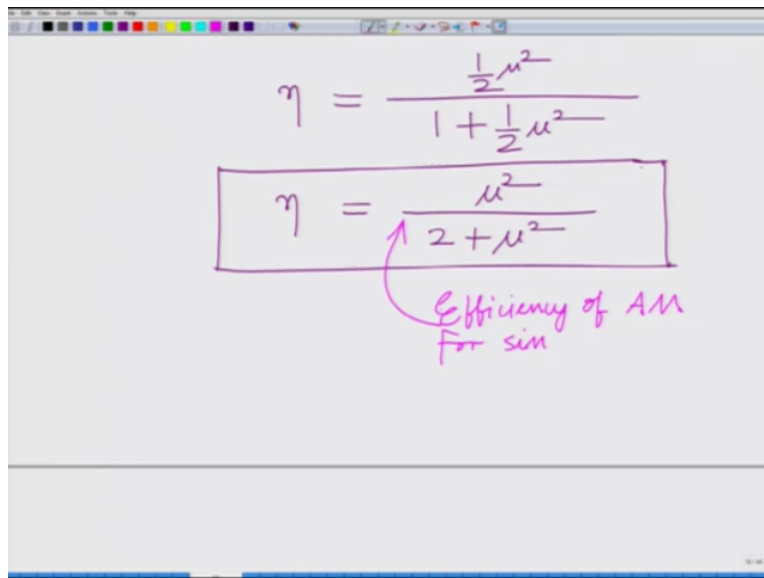 η = ½μ² / 1 + ½μ²
η = μ² / 2 + μ²
Efficiency of AM
For sin